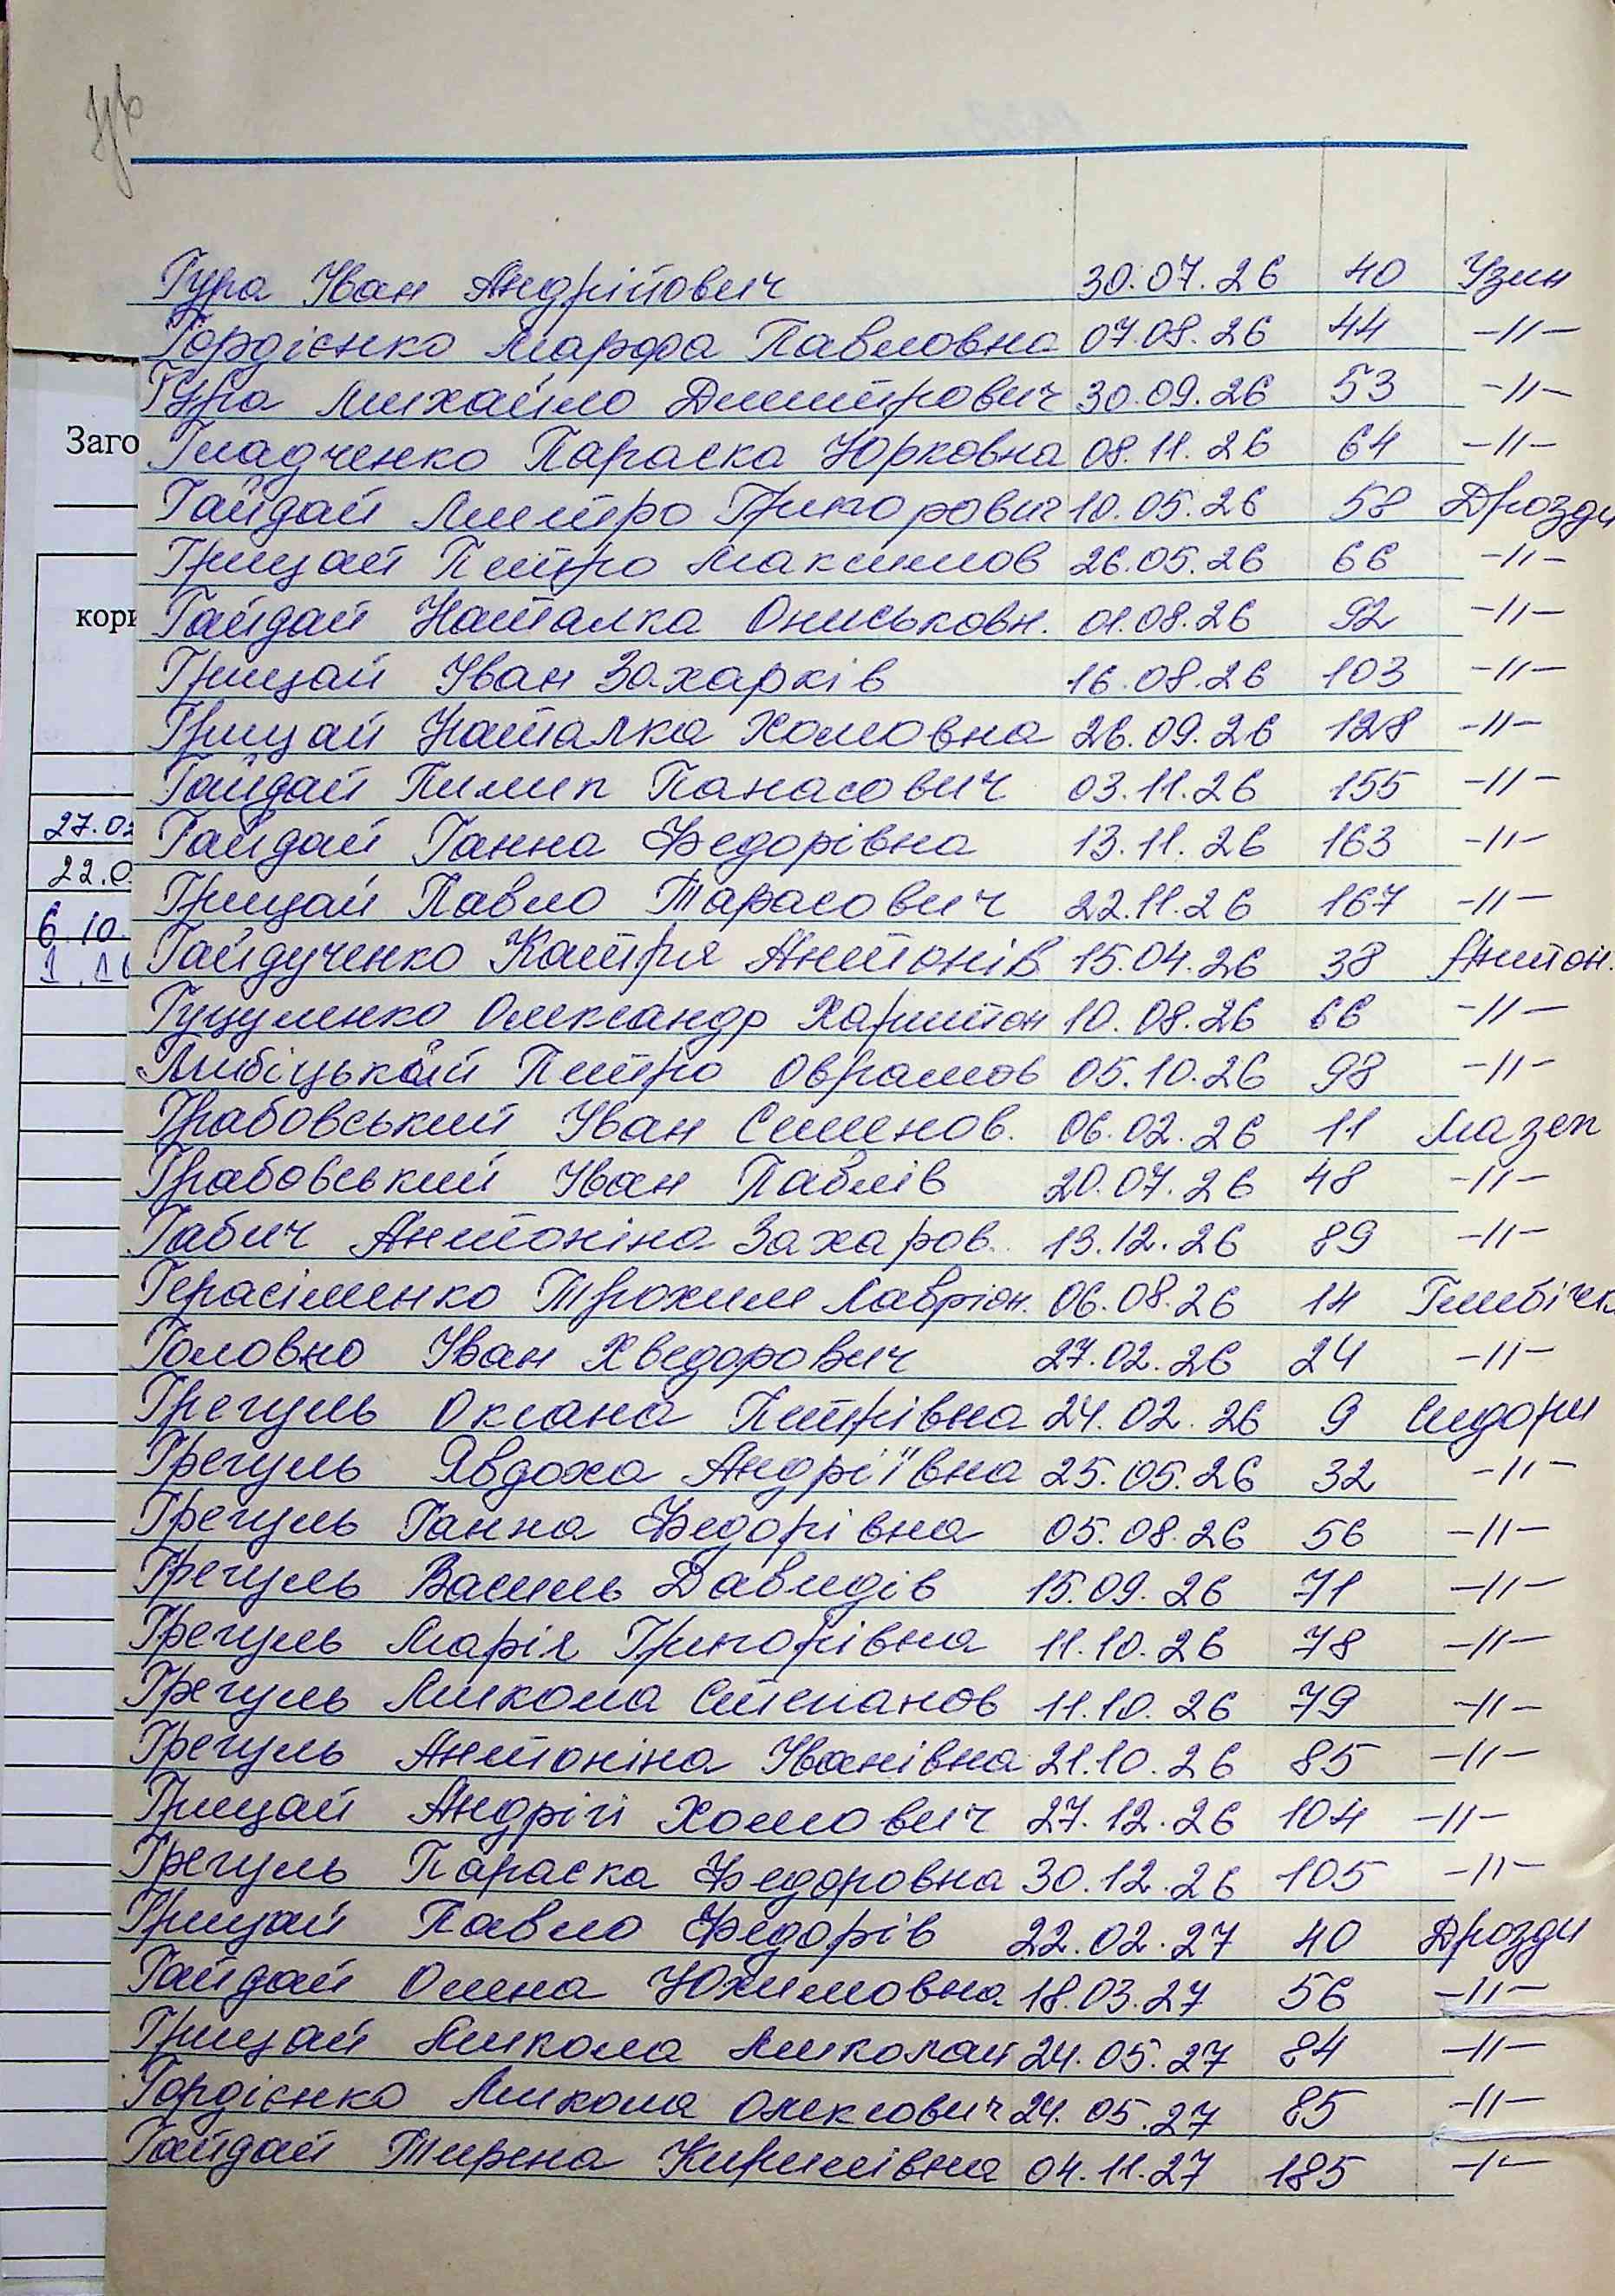 Гура Іван Андрійович 30.07.26 40 Узин
Гордієнко Марфа Павловна 07.08.26 44 -//-
Гура Михайло Дмитрович 30.09.26 53 -//-
Заго
Гладченко Параска Юрковна 08.11.26 64 -//-
Гайдай Дмитро Григорович 10.05.26 58 Дрозди
Грицай Петро Максимов 26.05.26 66 -//-
кори
Гайдай Наталка Ониськовн. 01.08.26 92 -//-
Грицай Іван Захарків 16.08.26 103 -//-
Грицай Наталка Хомовна 26.09.26 128 -//-
Гайдай Пилип Панасович 03.11.26 155 -//-
27.02
Гайдай Ганна Федорівна 13.11.26 163 -//-
22.0
Грицай Павло Тарасович 22.11.26 167 -//-
6.10.
Гайдученко Катря Антонів 15.04.26 38 Антон.
1.10
Гуцуленко Олександр Харитон 10.08.26 66 -//-
Петро Оврамов 05.10.26 98 -//-
Грабовський Іван Семенов. 06.02.26 11 Мазеп
Грабовський Іван Павлів 20.07.26 48 -//-
Габич Антоніна Захаров. 13.12.26 89 -//-
Герасіменко Трохим Лавріон. 06.08.26 14
Головко Іван Хведорович 27.02.26 24 -//-
Грегуль Оксана Петрівна 24.02.26 9 Сидори
Грегуль Явдоха Андріївна 25.05.26 32 -//-
Грегуль Ганна Федорівна 05.08.26 56 -//-
Грегуль Василь Давидів 15.09.26 71 -//-
Грегуль Марія Григорівна 11.10.26 78 -//-
Грегуль Микола Степанов 11.10.26 79 -//-
Грегуль Антоніна Іванівна 21.10.26 85 -//-
Грицай Андрій Хомович 27.12.26 104 -//-
Грегуль Параска Федоровна 30.12.26 105 -//-
Грицай Павло Федорів 22.02.27 40 Дрозди
Гайдай Олена Юхимовна 18.03.27 56 -//-
Грицай Микола Миколай 24.05.27 84 -//-
Гордієнко Микола Олексович 24.05.27 85 -//-
Гайдай Кирилівна 04.11.27 185 -//-